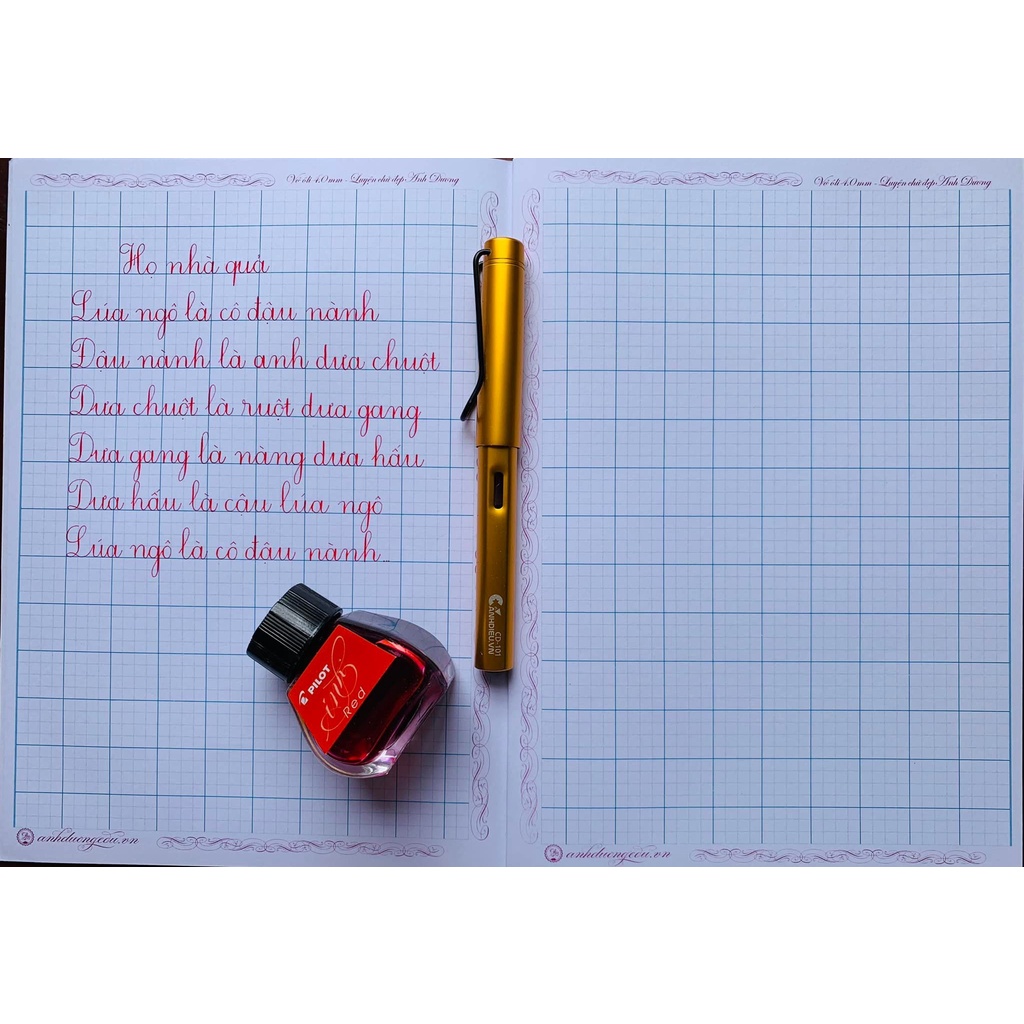 Vở ôli 4.0mm - Luyện chữ đẹp Ánh Dương
Họ nhà quả
Lúa ngô là cô đậu nành
Đậu nành là anh dưa chuột
Dưa chuột là ruột dưa gang
Dưa gang là nàng dưa hấu
Dưa hấu là cậu lúa ngô
Lúa ngô là cô đậu nành...
PILOT
ink
Red
CD-101
ANHDIEU.VN
anhduongedu.vn
Vở ôli 4.0mm - Luyện chữ đẹp Ánh Dương
anhduongedu.vn